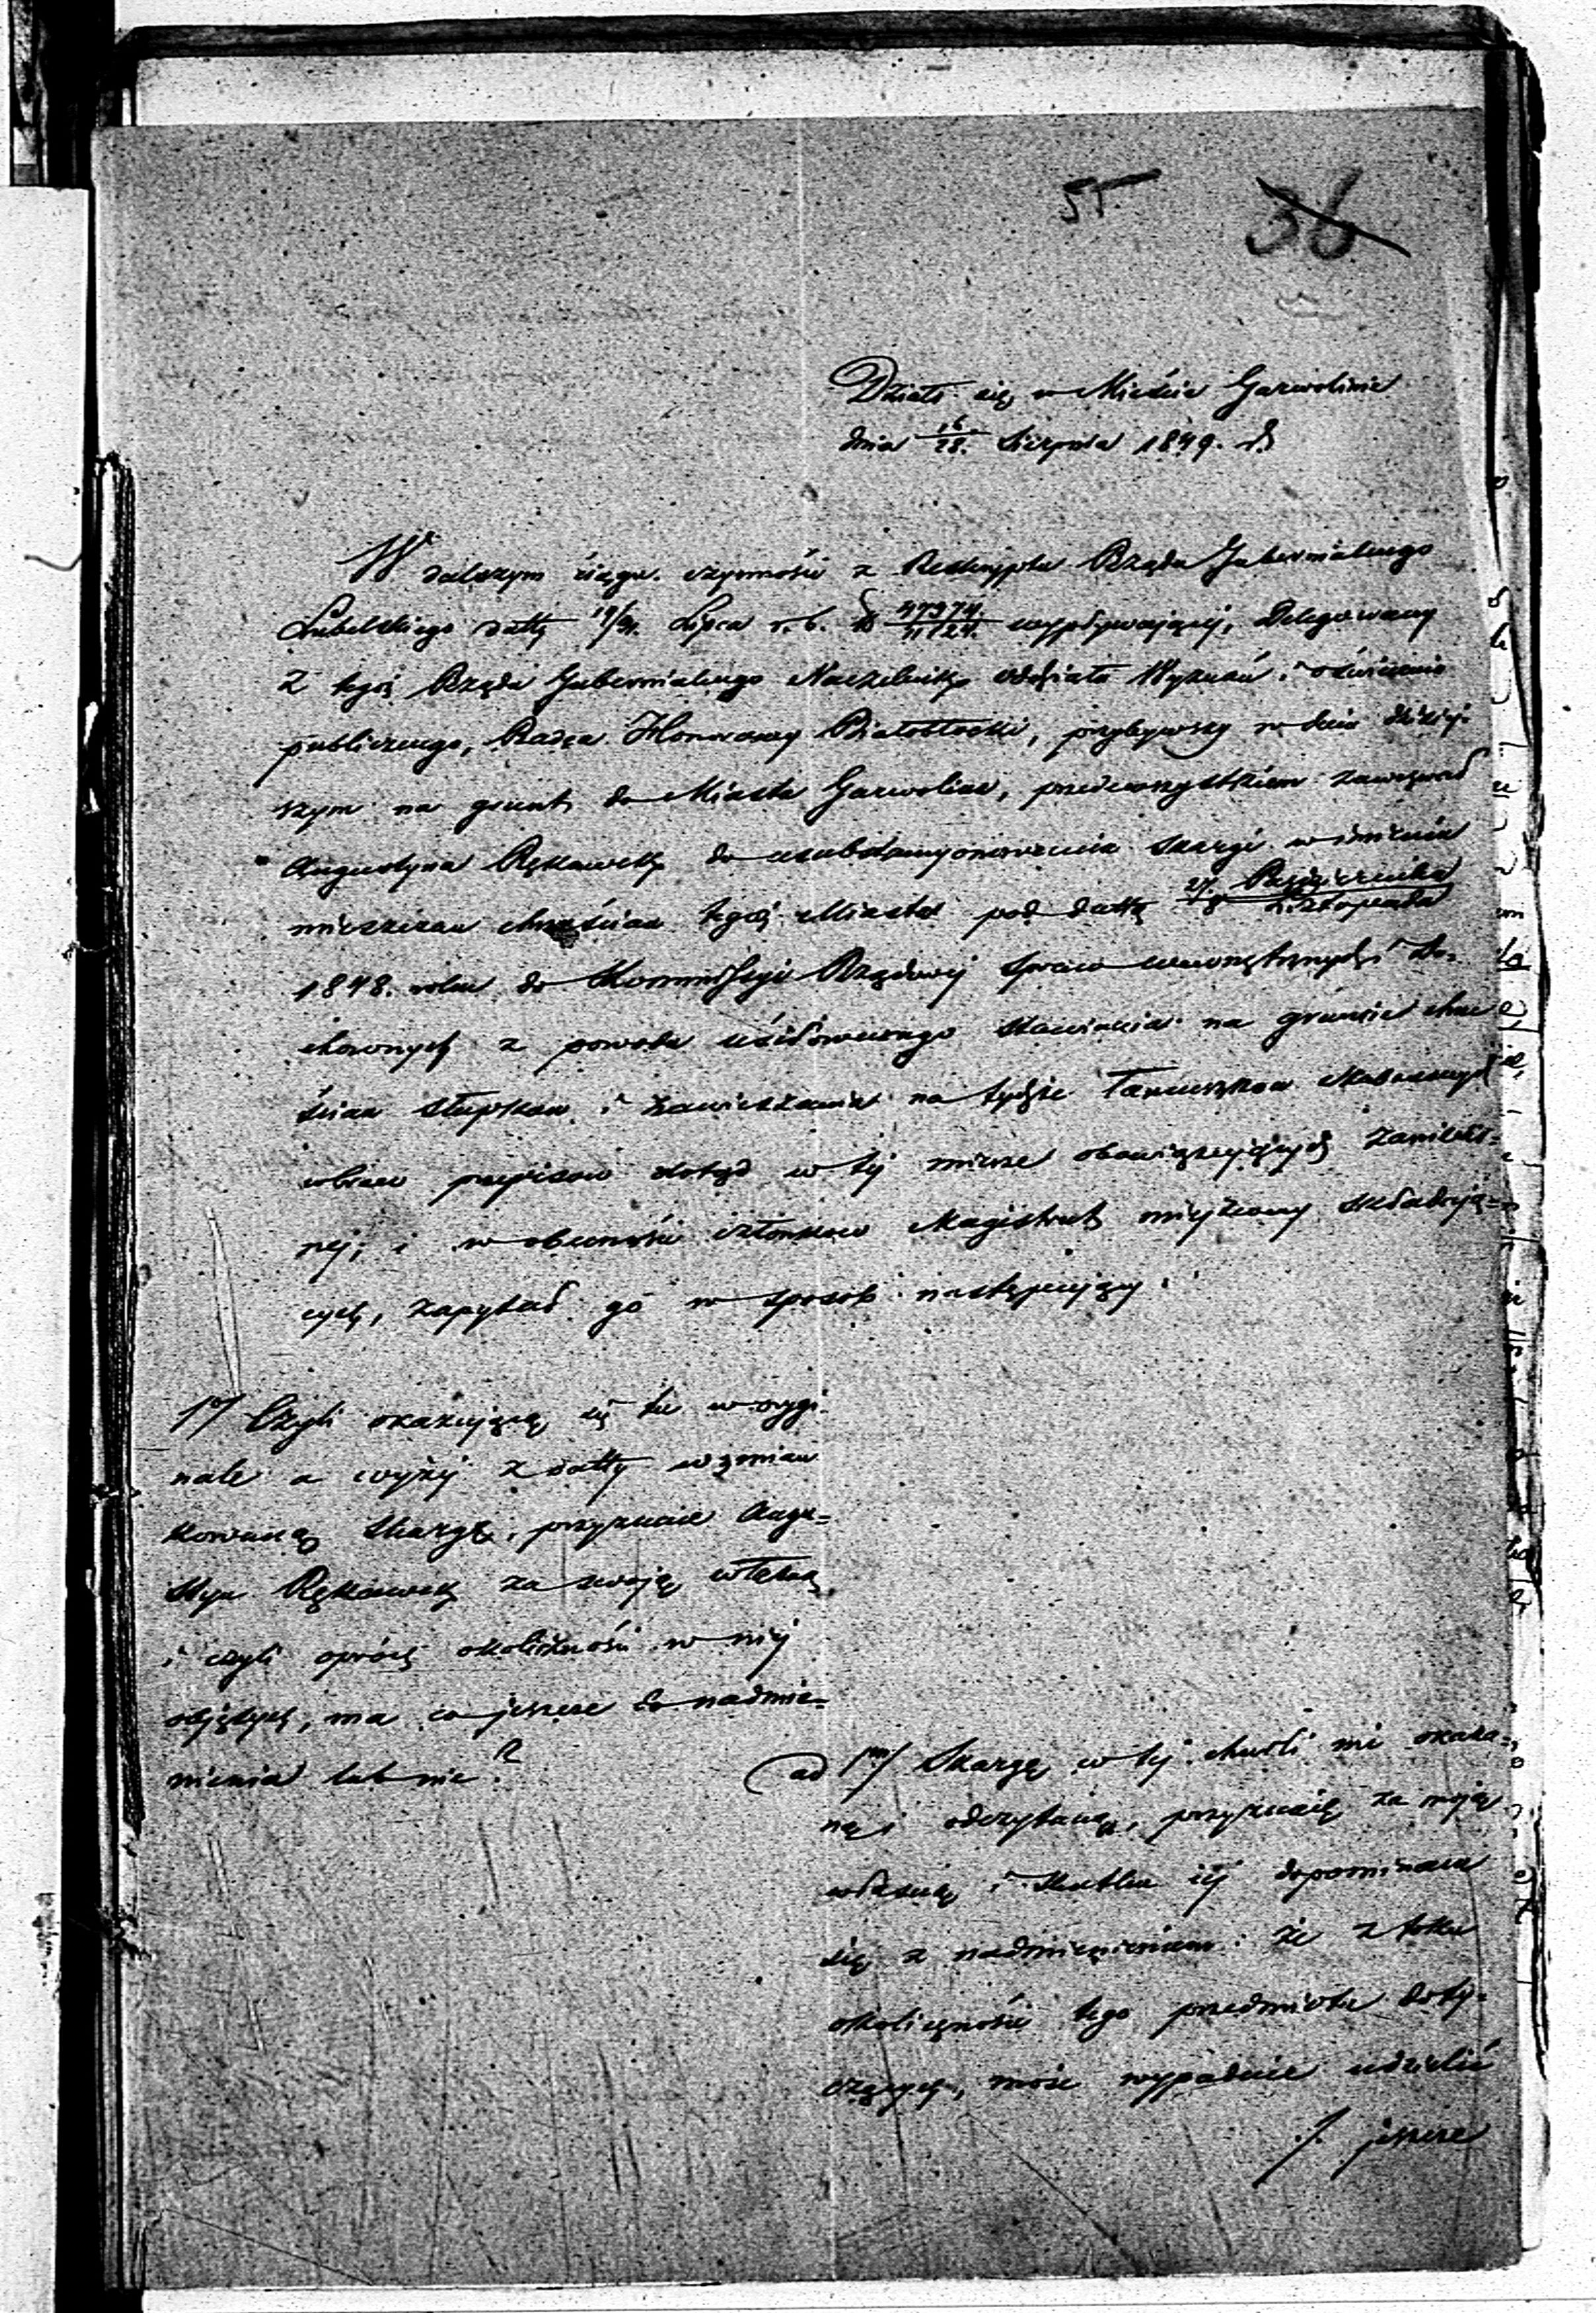 55
36
Działo się w Mieście Garwolinie
dnia 16/28. Sierpnia 1849. r.
W dalszym ciągu czynności z Reskryptu Rządu Gubernialnego
Lubelskiego datty 19/31. Lipca r. b. N 47974/11724 wypływającej, Delegowany
z tegoż Rządu Gubernialnego Naczelnik oddziału Wyznań i oświecenia
publicznego, Radca Honorowy Białobłocki, przybywszy w dniu dzisiej-
szym na grunt do Miasta Garwolina, przedewszystkiem zawezwał
Augustyna Rękawek do usubstancyonowania skargi w imieniu
mieszczan chrześcian tegoż Miasta pod dattą 27 Października/8 Listopada
1848. roku do Kommissyi Rządowej Spraw Wewnętrznych i Du-
chownych z powodu usiłowanego stawiania na gruncie chrze
ścian słupków i zawieszania na tychże łańcuszków
wbrew przepisów dotąd w tej mierze obowiązujących zanieśio-
nej, i w obecności członków Magistrat miejscowy składają-
cych, zapytał go w sposób następujący:
1mo/ Czyli okazującą się tu w orygi-
nale a wyżej z datty wzmian
kowaną skargę, przyznaie Augu-
styn Rękawek za swoję własną
i czyli oprócz okoliczności w niej
objętych, ma co jeszcze do nadmie-
nienia lub nie?
ad 1mo/ Skargę w tej chwili mi okaza-
ną i odczytaną, przyznaię za moję
własną i skutku iej dopominam
się z nadmienieniem: że z toku
okoliczności tego przedmiotu doty-
czących, może wypadnie udzielić
./. jeszcze